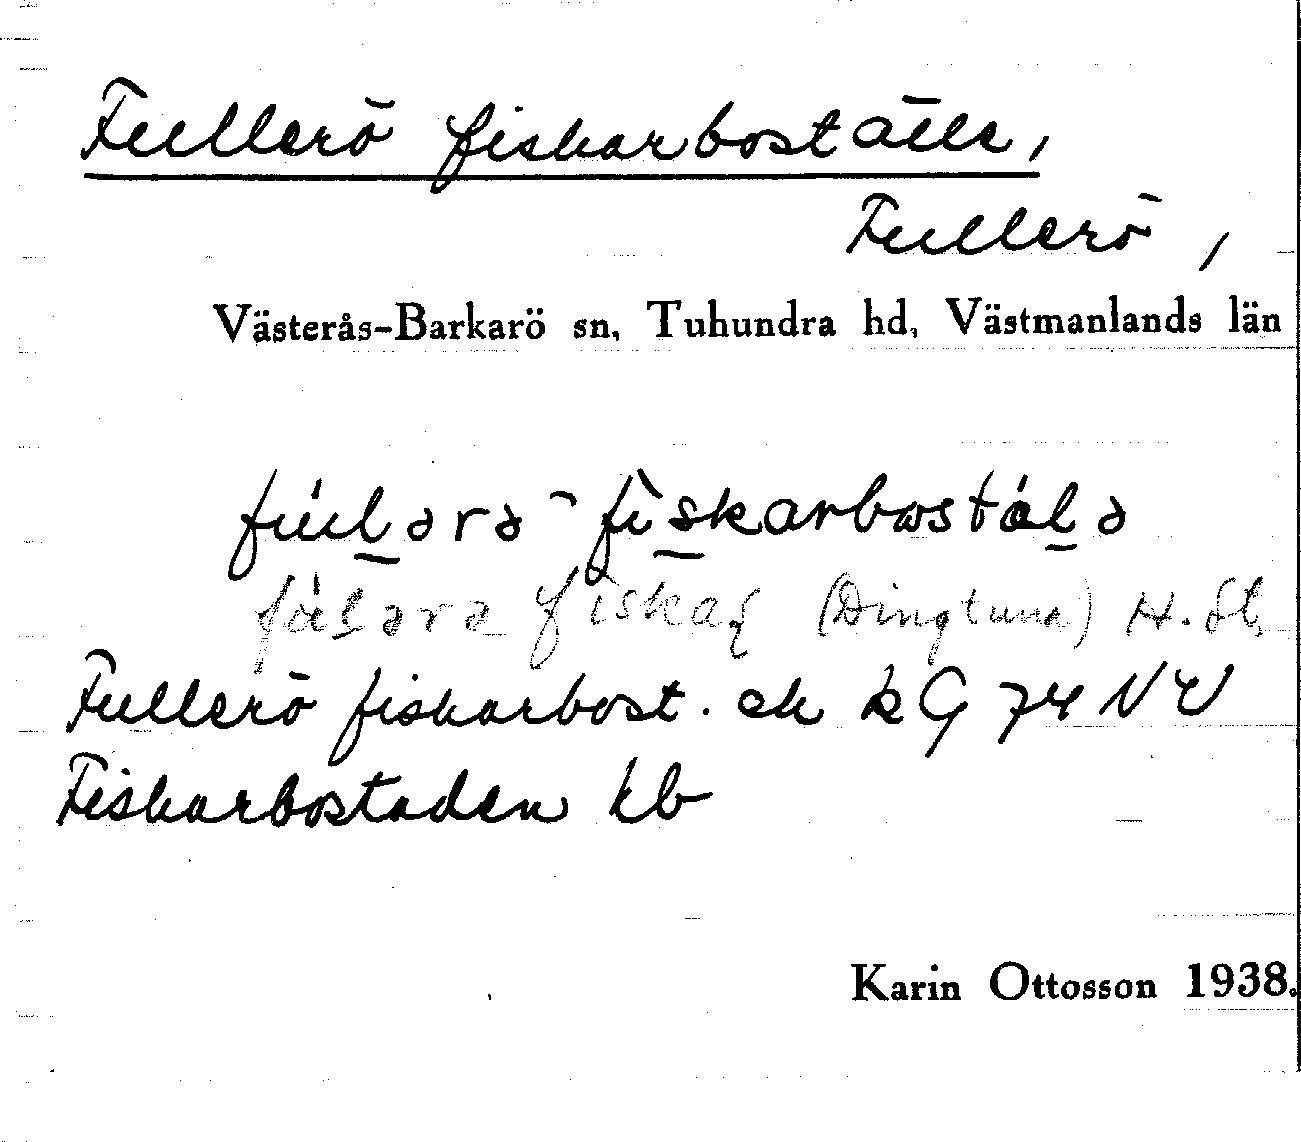 Fullerö fiskarboställe,
Fullerö,
Västerås-Barkarö sn, Tuhundra hd, Västmanlands län
fúlərə - fìskarbostálə
fúlərə fiska (Dingtuna) H. St.
Fullerö fiskarbost. ek kG 74 NV
Fiskarbostaden kb
Karin Ottosson 1938.